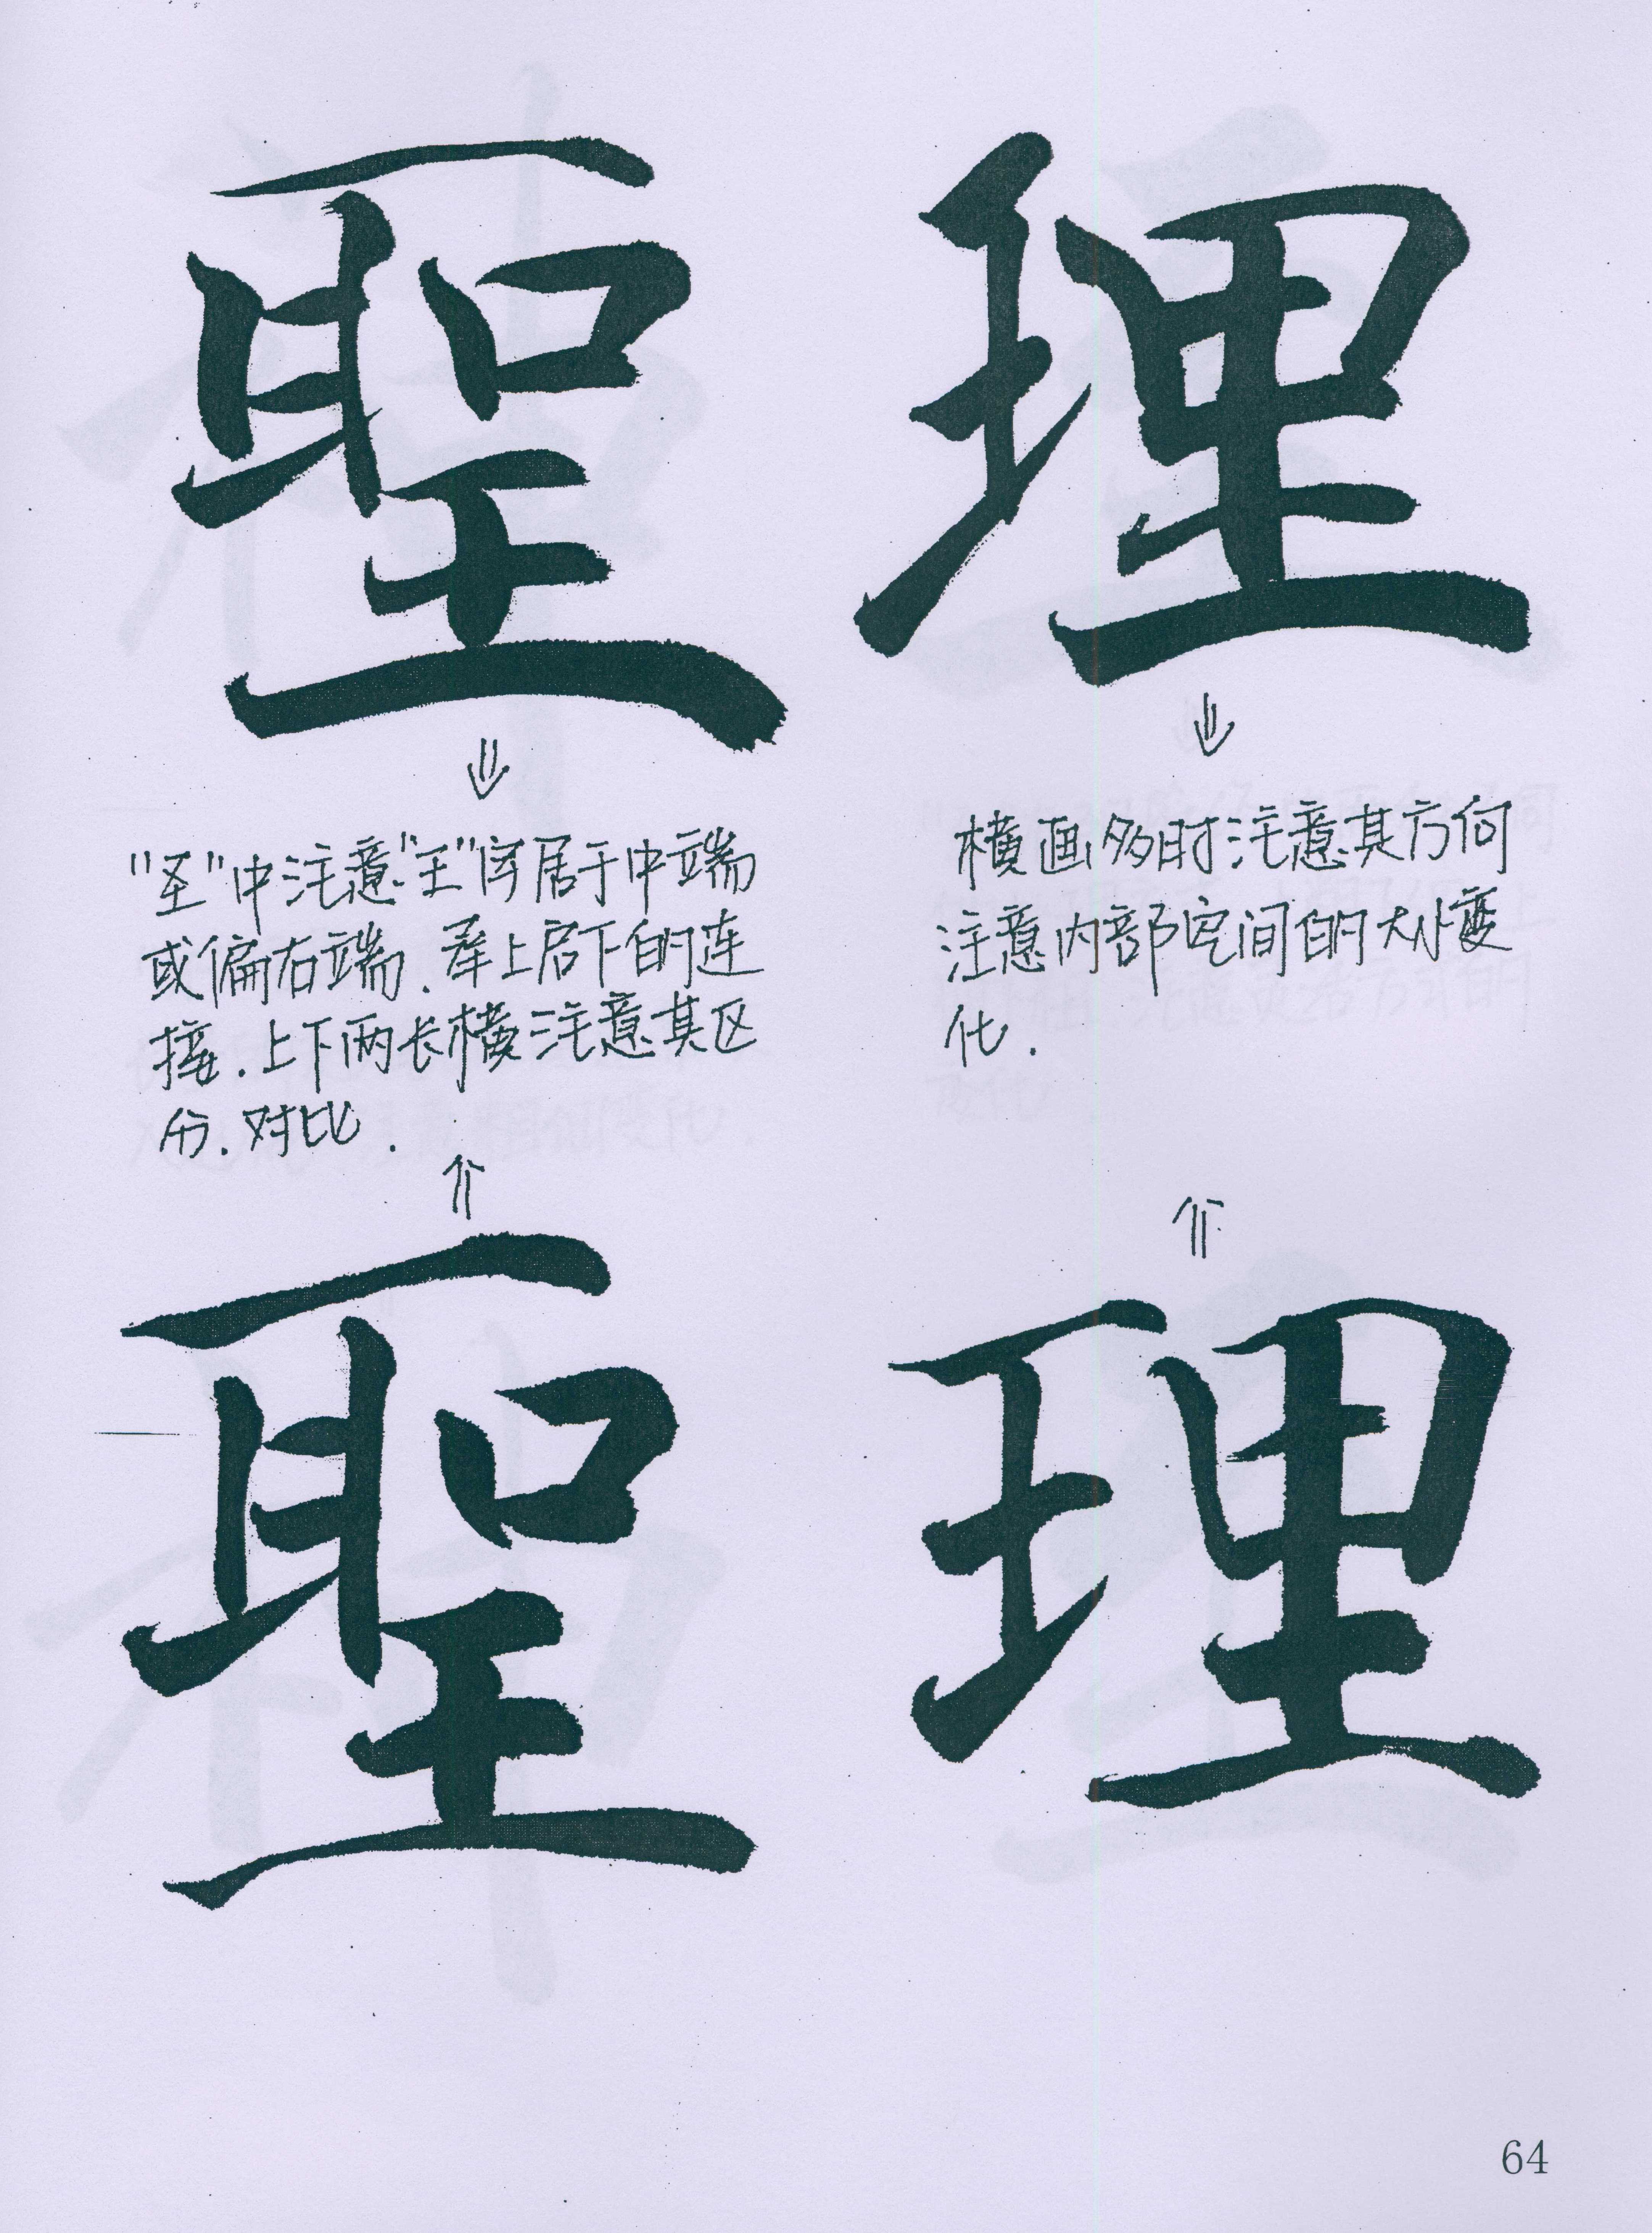 聖
理
"圣"中注意"王"字居于中端
或偏右端.承上启下的连
接.上下两长横注意其区
分.对比.
横画多时注意其方向
注意内部空间的大小变
化.
聖
理
64